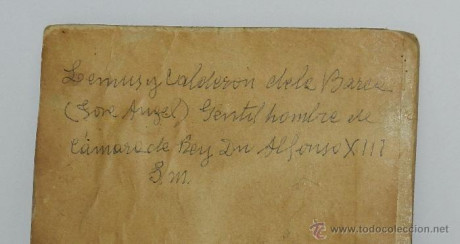 Lemus y Calderon de la Barca
(Jose Angel) Gentil hombre de
Cámara de Rey Dn Alfonso XIII
S.m.
todocoleccion.net